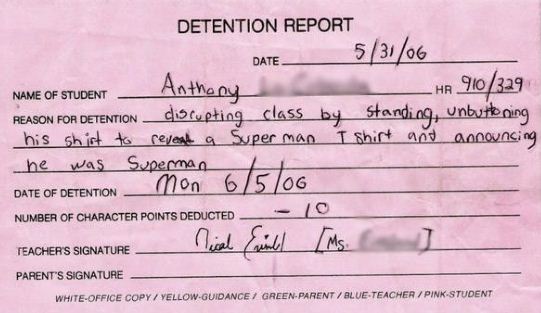 DETENTION REPORT
DATE 5/31/06
NAME OF STUDENT Anthony HR 910/329
REASON FOR DETENTION disrupting class by standing, unbuttoning
his shirt to reveal a Superman T shirt and announcing
he was Superman
DATE OF DETENTION Mon 6/5/06
NUMBER OF CHARACTER POINTS DEDUCTED -10
TEACHER'S SIGNATURE [Ms. ]
PARENT'S SIGNATURE
WHITE-OFFICE COPY / YELLOW-GUIDANCE / GREEN-PARENT / BLUE-TEACHER / PINK-STUDENT